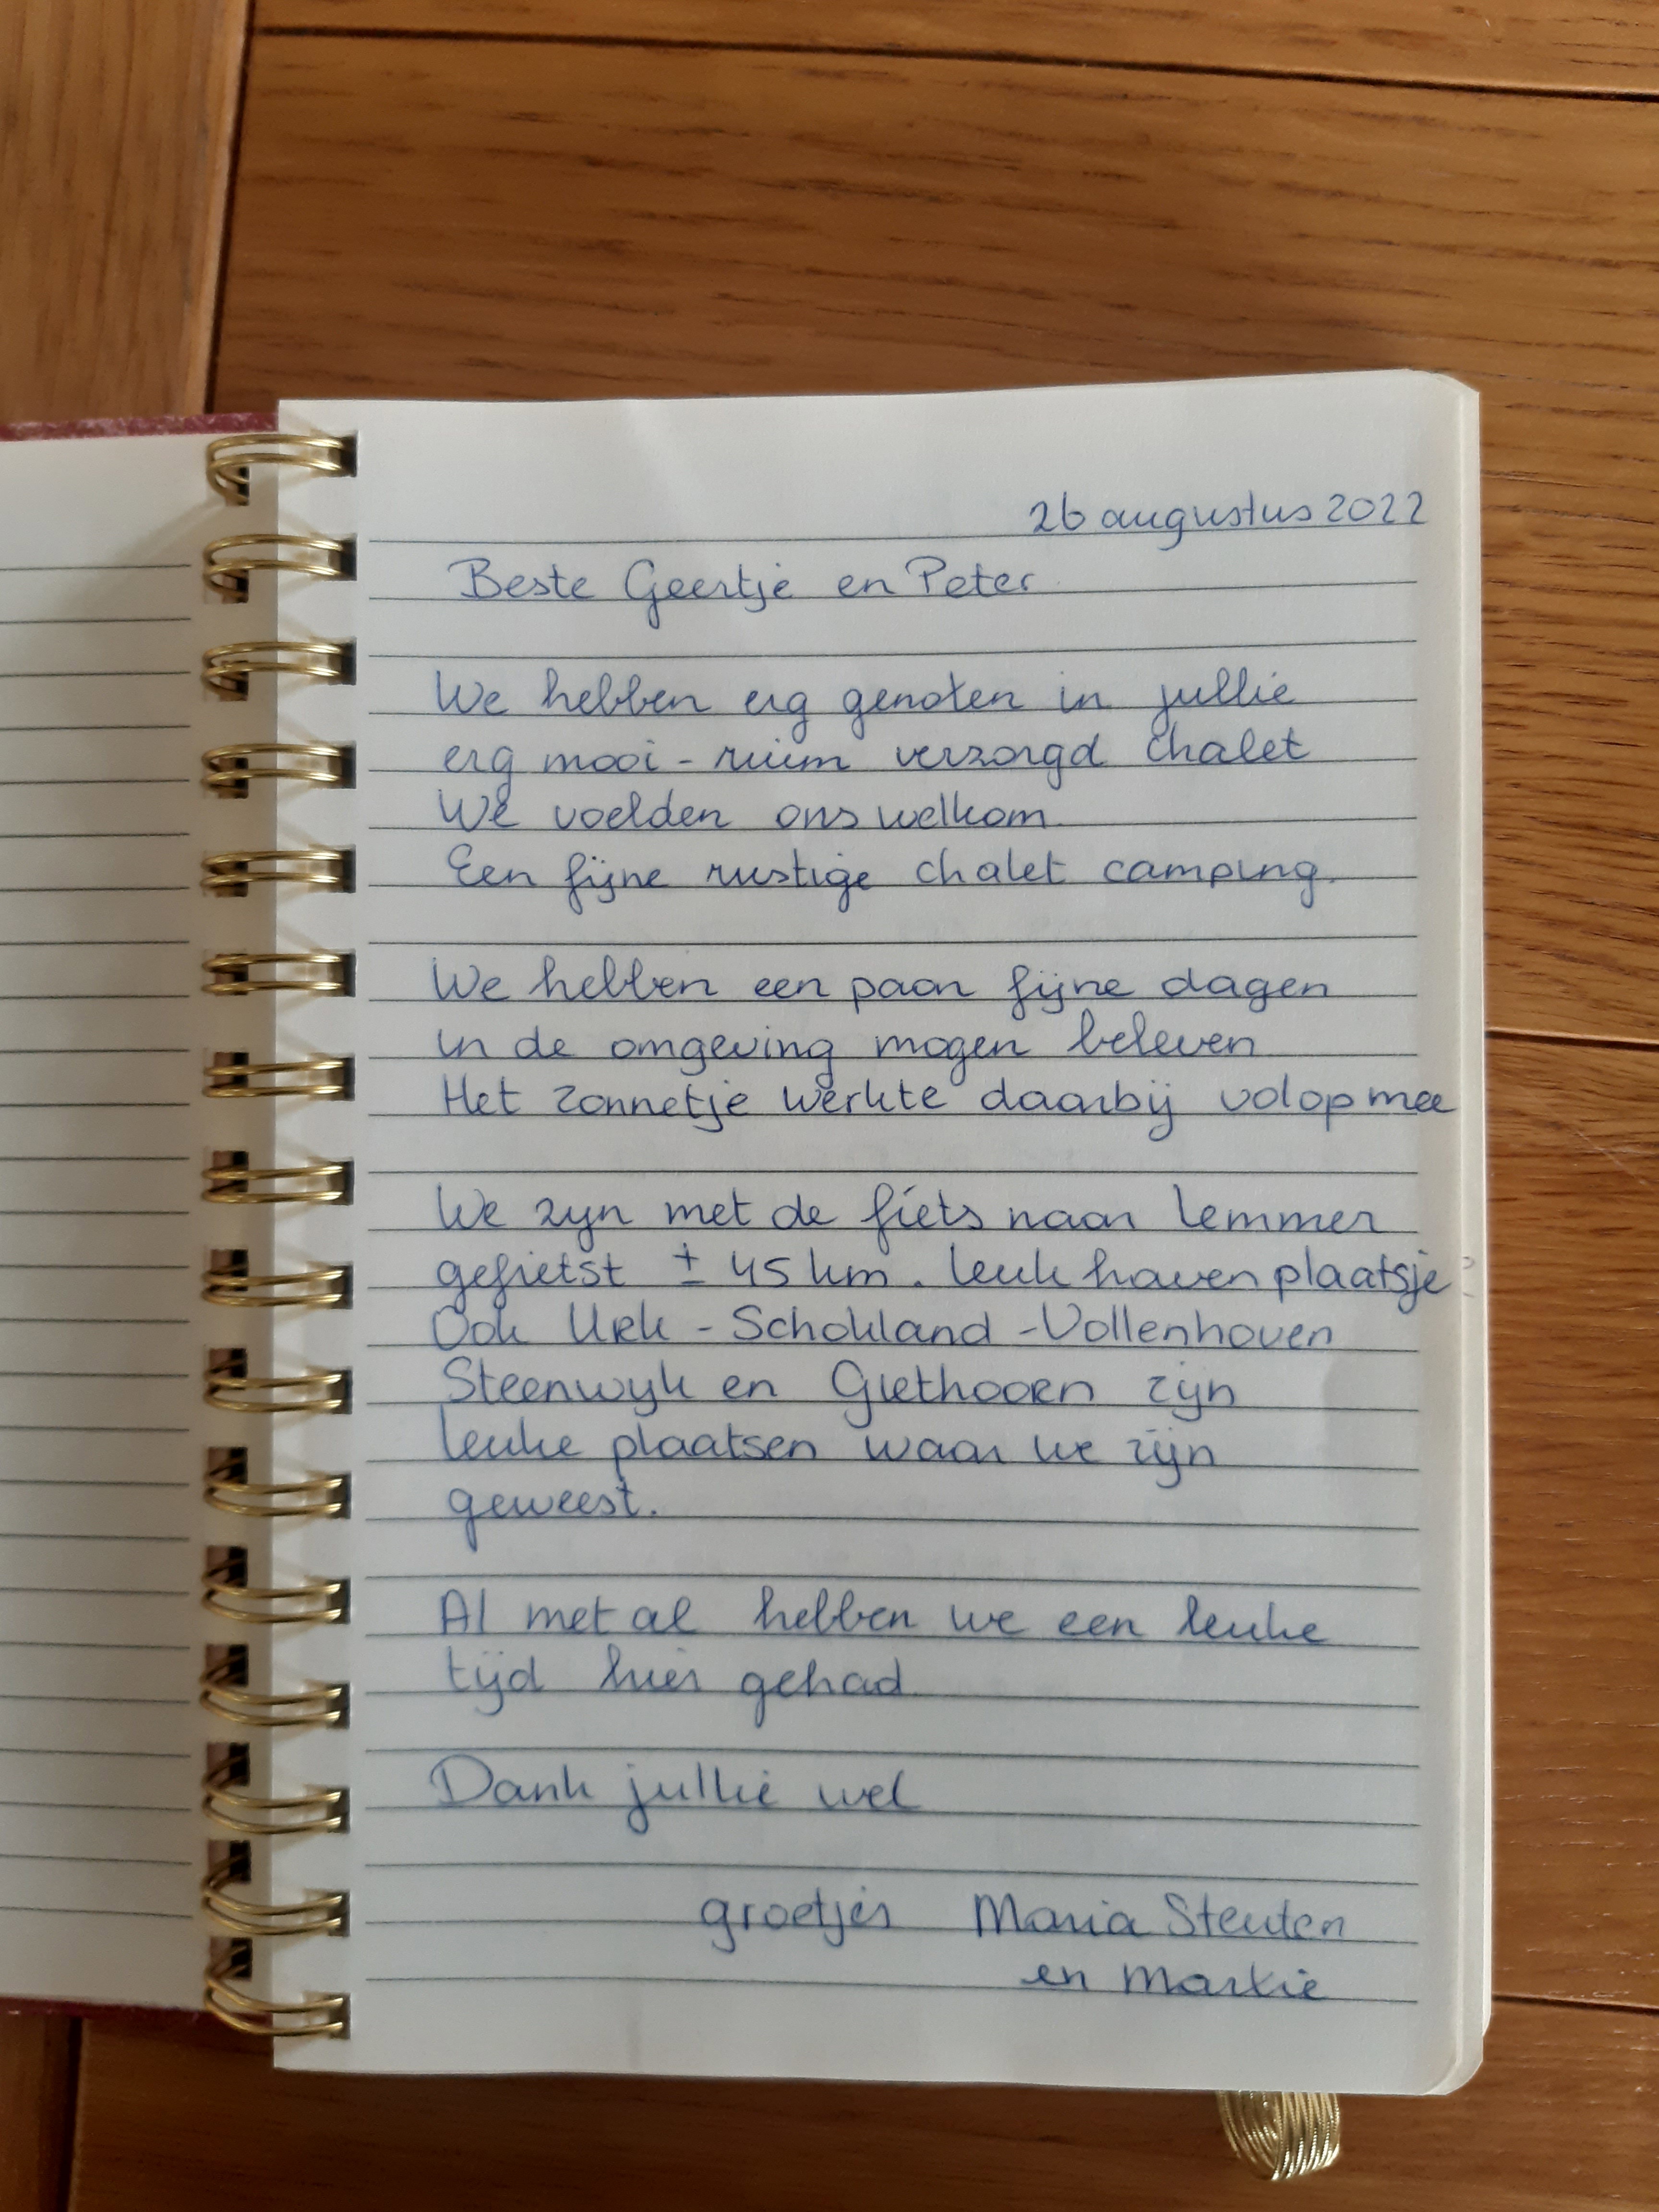 26 augustus 2022
Beste Geertje en Peter
We hebben erg genoten in jullie
erg mooi - ruim verzorgd chalet
We voelden ons welkom.
Een fijne rustige chalet camping.
We hebben een paar fijne dagen
in de omgeving mogen beleven
Het zonnetje werkte daarbij volop mee
We zijn met de fiets naar Lemmer
gefietst ± 45 km. leuk havenplaatsje
Ook Urk - Schokland - Vollenhoven
Steenwijk en Giethoorn zijn
leuke plaatsen waar we zijn
geweest.
Al met al hebben we een leuke
tijd hier gehad.
Dank jullie wel
groetjes Maria Steuten
en Martie